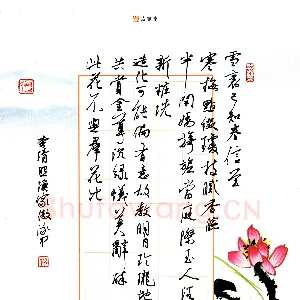 雪裏已知春信至
寒梅點綴瓊枝膩香臉
半開嬌旖旎當庭際玉人浴出
新妝洗
造化可能偏有意故教明月玲瓏地
共賞金尊沈綠蟻莫辭醉
此花不與群花比
李清照漁家傲